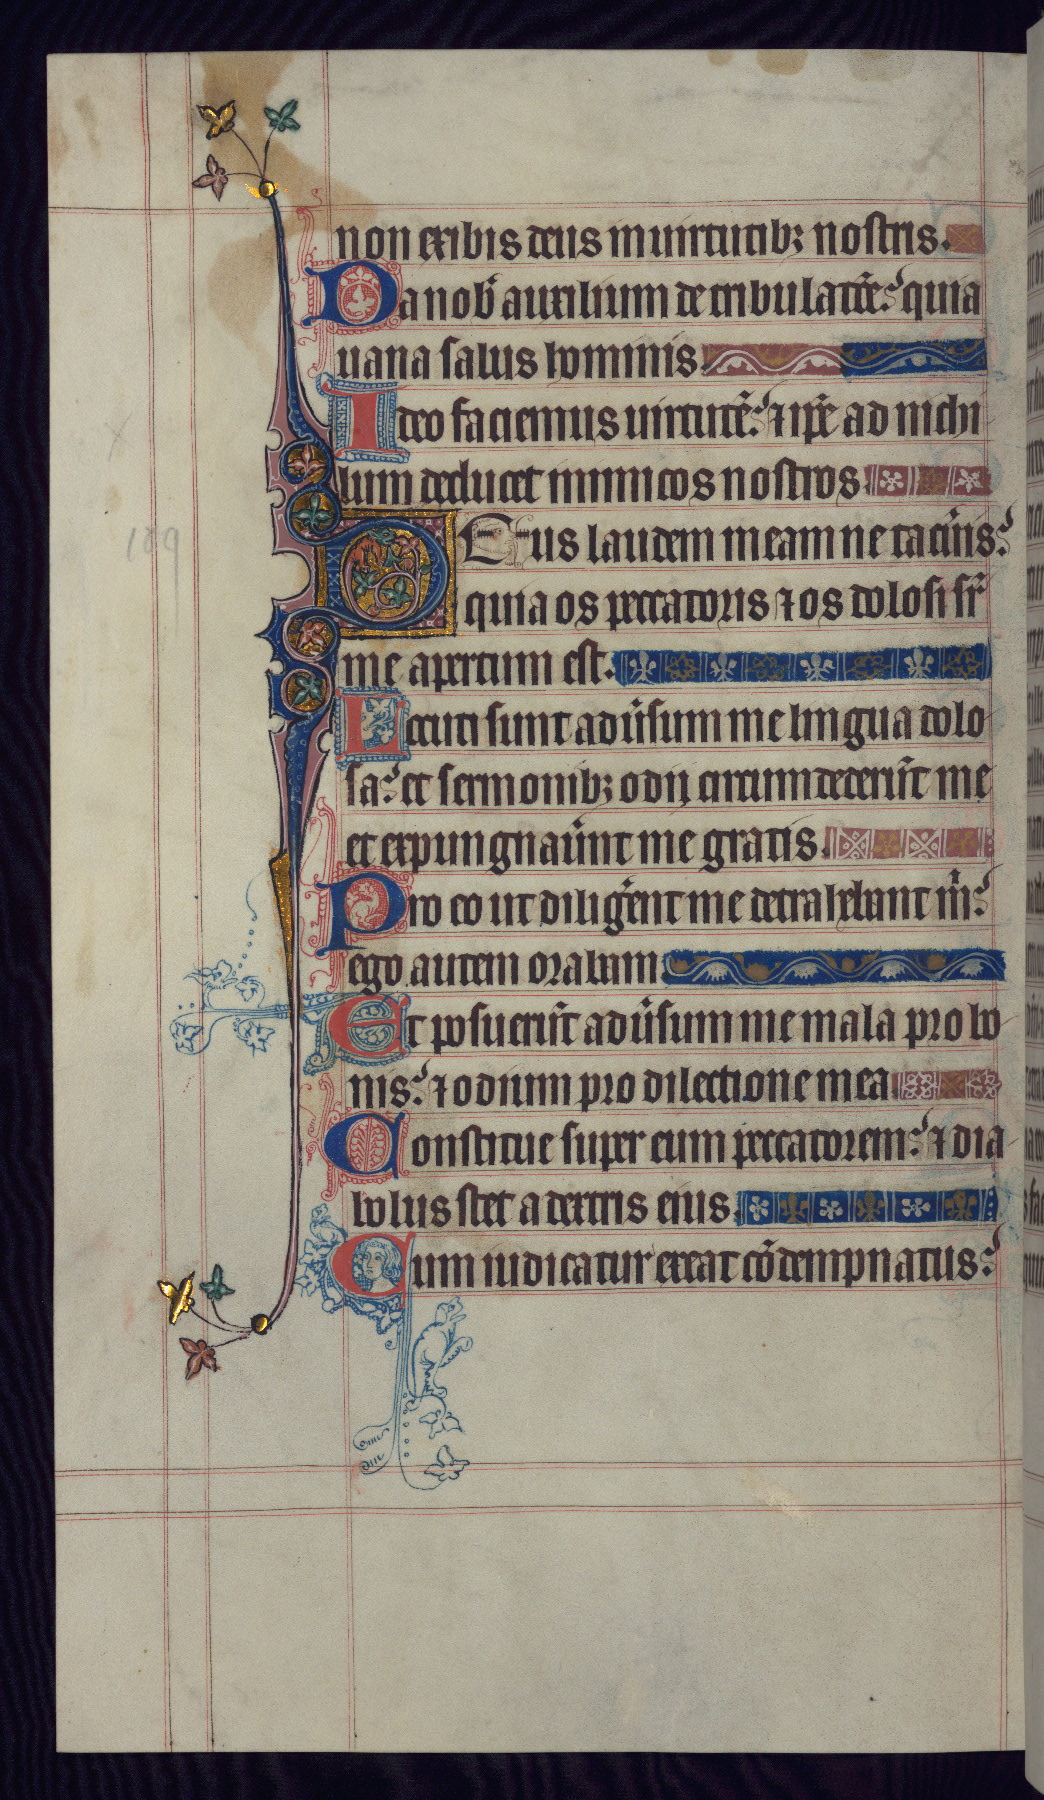 non exibis deus in uirtutibꝫ nostris.
Da nob̄ auxilium de tribulat̄ōe: quia
uana salus hominis
Ideo faciemus uirtutē: ⁊ ip̄e ad nichi
lum deducet inimicos nostros
DEus laudem meam ne tacūis:
quia os peccatoris ⁊ os dolosi sr̄
me apertum est.
Locuti sunt adūsum me lingua dolo
sa: et sermonibꝫ odij circumdederūt me
et expungnaūnt me gratis.
Pro eo ut diliḡent me detrahebant m̄:
ego autem orabam
Et posuerūt adūsum me mala pro bo
nis: ⁊ odium pro dilectione mea
Constitue super eum peccatorem: ⁊ dia
bolus stet a dextris eius.
Cum iudicatur exeat cōdempnatus:
109